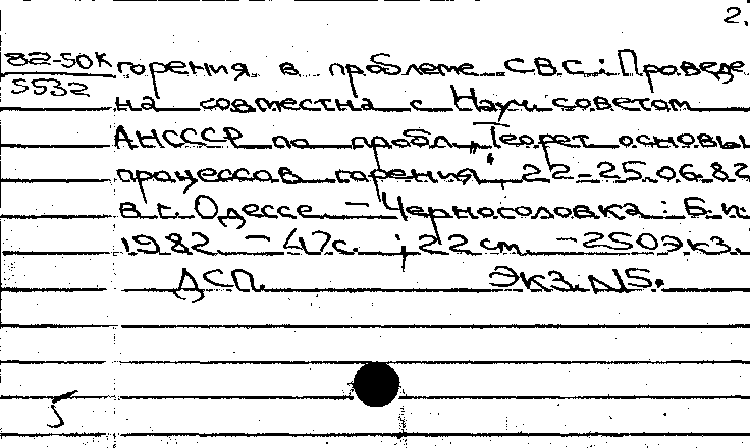 2.
82-50К горения в проблеме СВС: Проведе
5532
на совместна с Науч. советом
АНСССР по пробл. "Теорет основы
процессов горения" 22-25.06.82
в г. Одессе. - Черноголовка: Б.и.
1982 - 47с. ; 22 см. - 250экз.
ДСП. Экз.N5.
5